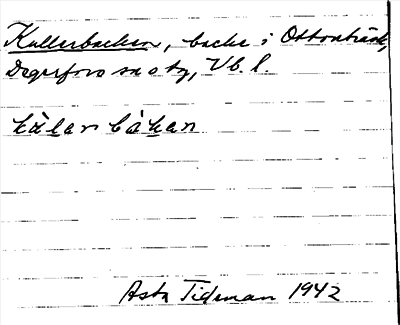 Kullerbacken, backe i Ottonträsk,
Degerfors sn o tg, Vb. l.
kälan båkan
Asta Tidman 1942